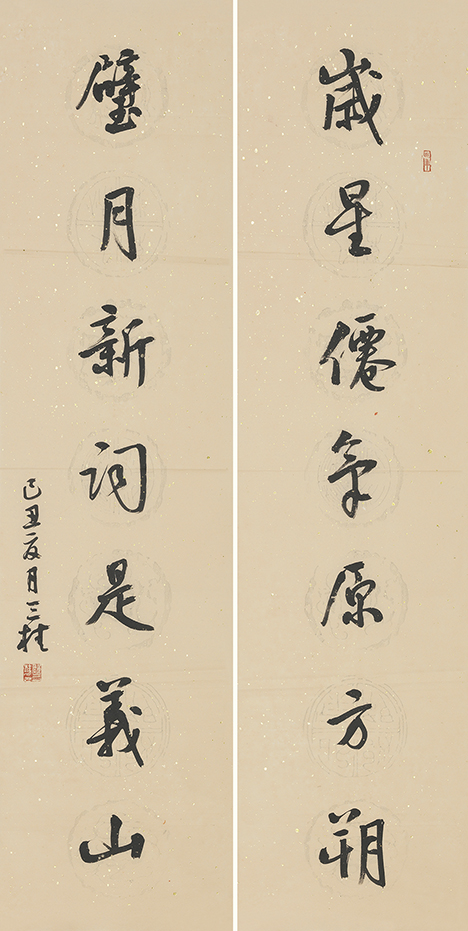 歲星僊氣原方朔
璧月新詞是義山
己丑夏月三